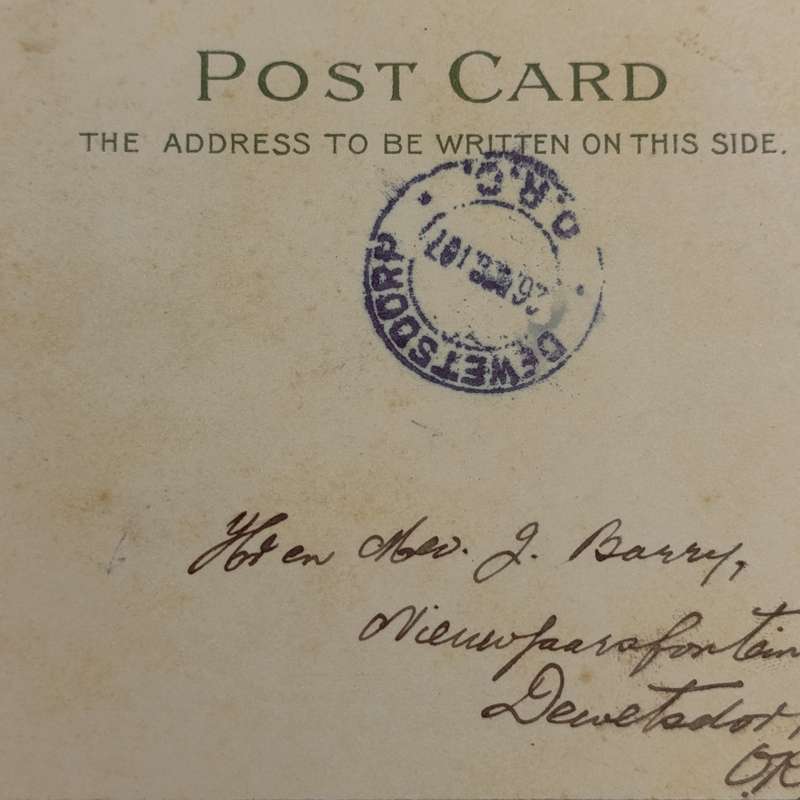 POST CARD
THE ADDRESS TO BE WRITTEN ON THIS SIDE.
O.R.C.
26 DEC 107
DEWETSDORP
Hr en Mev. J. Barry,
Nieuwjaarsfontein
Dewetsdorp
O.R